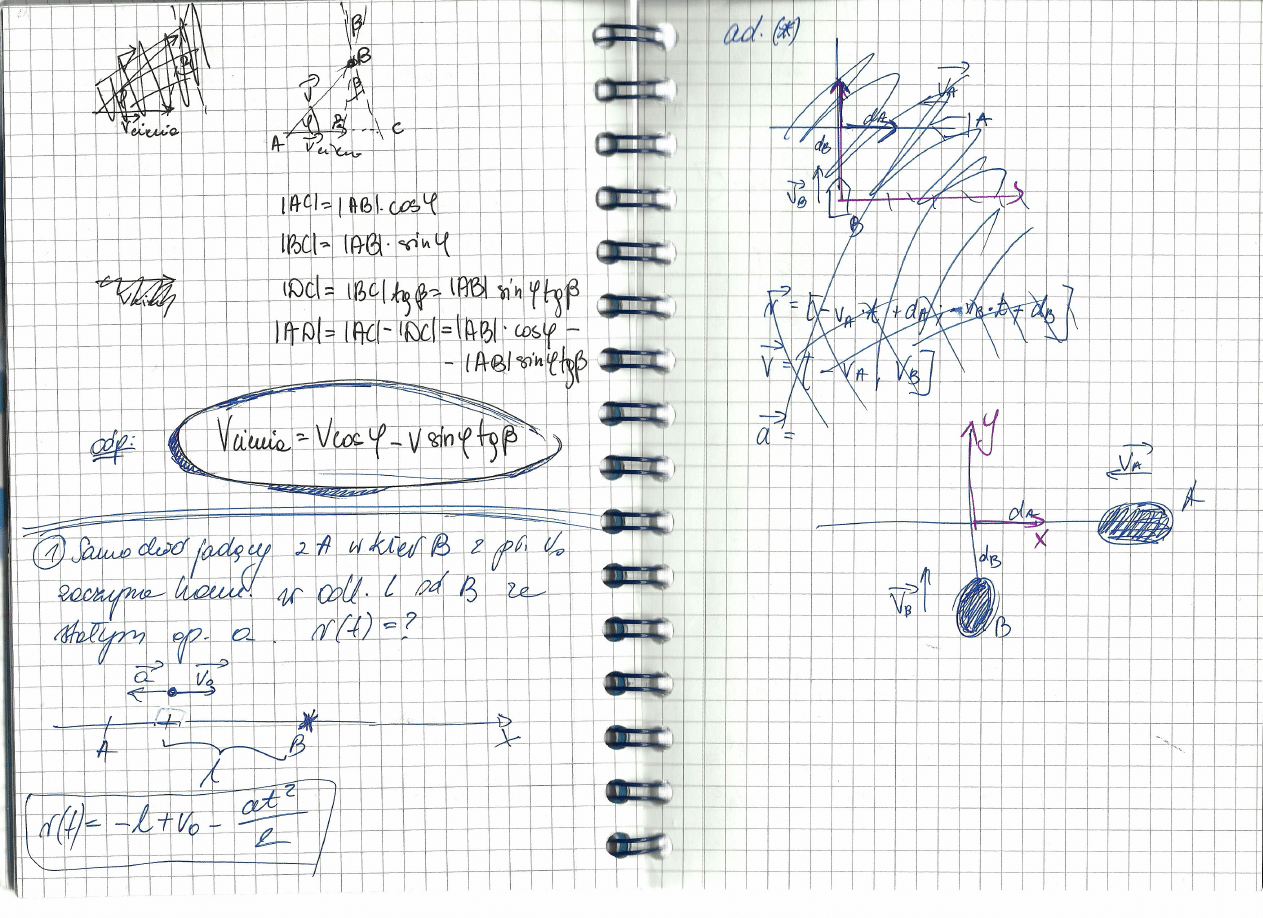 V cienia
β
B
β
V
φ
A
V cienia
C
|AC| = |AB| · cosφ
|BC| = |AB| · sinφ
|DC| = |BC| tgβ = |AB| sinφ tgβ
|AD| = |AC| - |DC| = |AB| · cosφ -
- |AB| sinφ tgβ
odp:
Vcienia = V cosφ - V sinφ tgβ
① Samochód jadący z A w kier B z pr. V₀
zaczyna ham. w odl. l od B ze
stałym op. a r(t) = ?
a V₀
A B X
l
r(t) = -l + V₀ - at²/2
ad. (*)
V_A
d_A
A
d_B
V_B
B
r = [-V_A·t + d_A; -V_B·t + d_B]
V = [-V_A, V_B]
a =
y
V_A
A
d_A
x
d_B
V_B
B